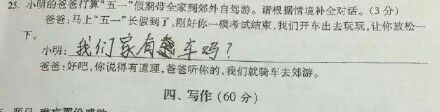 25. 小明的爸爸打算“五一”假期带全家到郊外自驾游。请根据情境补全对话。(3分)
爸爸:马上“五一”长假到了,刚好你一模考试结束,我们开车出去玩玩,让你放松一
下。
小明: 我们家有车吗?
爸爸:好吧,你说得有道理,爸爸听你的,我们就骑车去郊游。
四、写作(60分)